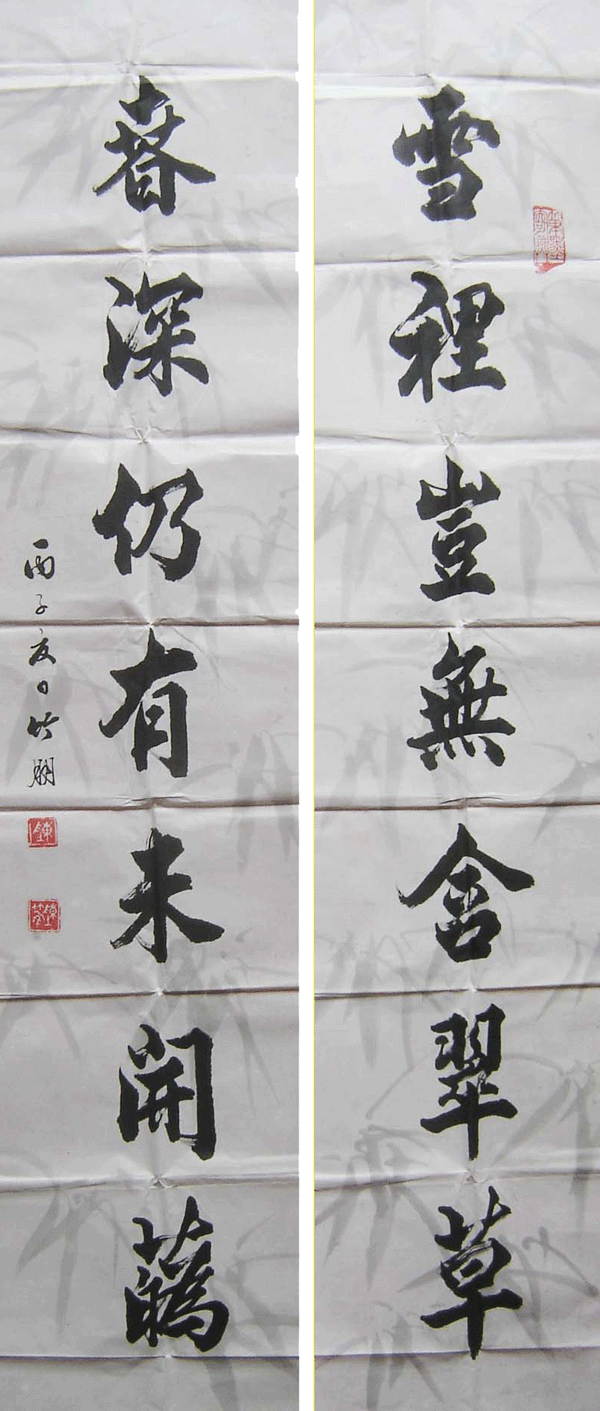 雪裡豈無含翠草
春深仍有未開蘤
丙子夏日竹朋